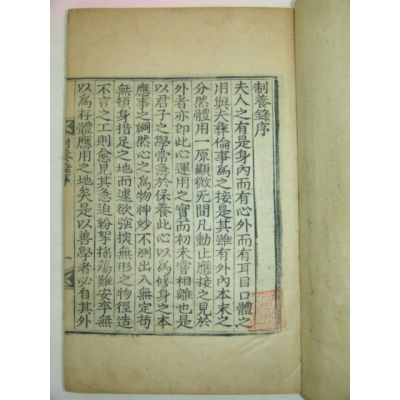 制養錄序
夫人之有是身內而有心外而有耳目口體之
用與夫彝倫事為之接是其雖有外內本末之
分然體用一原顯微无間凡動止應接之見於
外者亦即此心運用之實而初未嘗相離也是
以君子之學常急於保養此心以為修身之本
應事之綱然心之為物神妙不測出入無定苟
無頓身措足之地而遽欲強摸無形之物徑造
不言之工則愈見其急迫紛挐搖蕩難安卒無
以為存體應用之地矣是以善學者必自其外
制養錄序
一